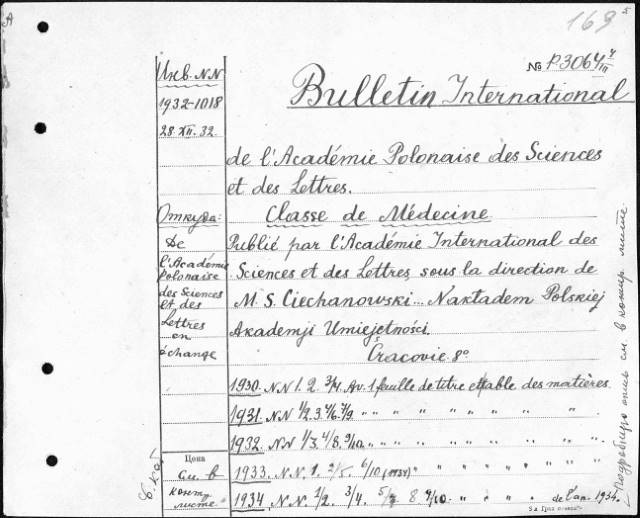 169
№ P.3064 V/III
Bulletin International
de l'Académie Polonaise des Sciences
et des Lettres.
Classe de Médecine
Publié par l'Académie International des
Sciences et des Lettres sous la direction de
M. S. Ciechanowski... Nakładem Polskiej
Akademji Umiejętności.
Cracovie. 8º
1930. N N 1. 2. 3/4. Av. 1 feuille de titre et table des matières.
1931. N N 1/2. 3. 4/6. 7/9. " " " " " " " " "
1932. N N 1/3. 4/8. 9/10. " " " " " " " " "
1933. N.N. 1. 2/5. 6/10 " " " " " " " "
1934. N.N. 1/2. 3/4. 8. 9/10. " " " " de l'an. 1934.
Инв. N.N
1932-1018
28 XII. 32.
Откуда:
De
l'Académie
Polonaise
des Sciences
et des
Lettres
en
échange
Цена
См. в
конт.
листе
Подробную опись см. в контр. листе.